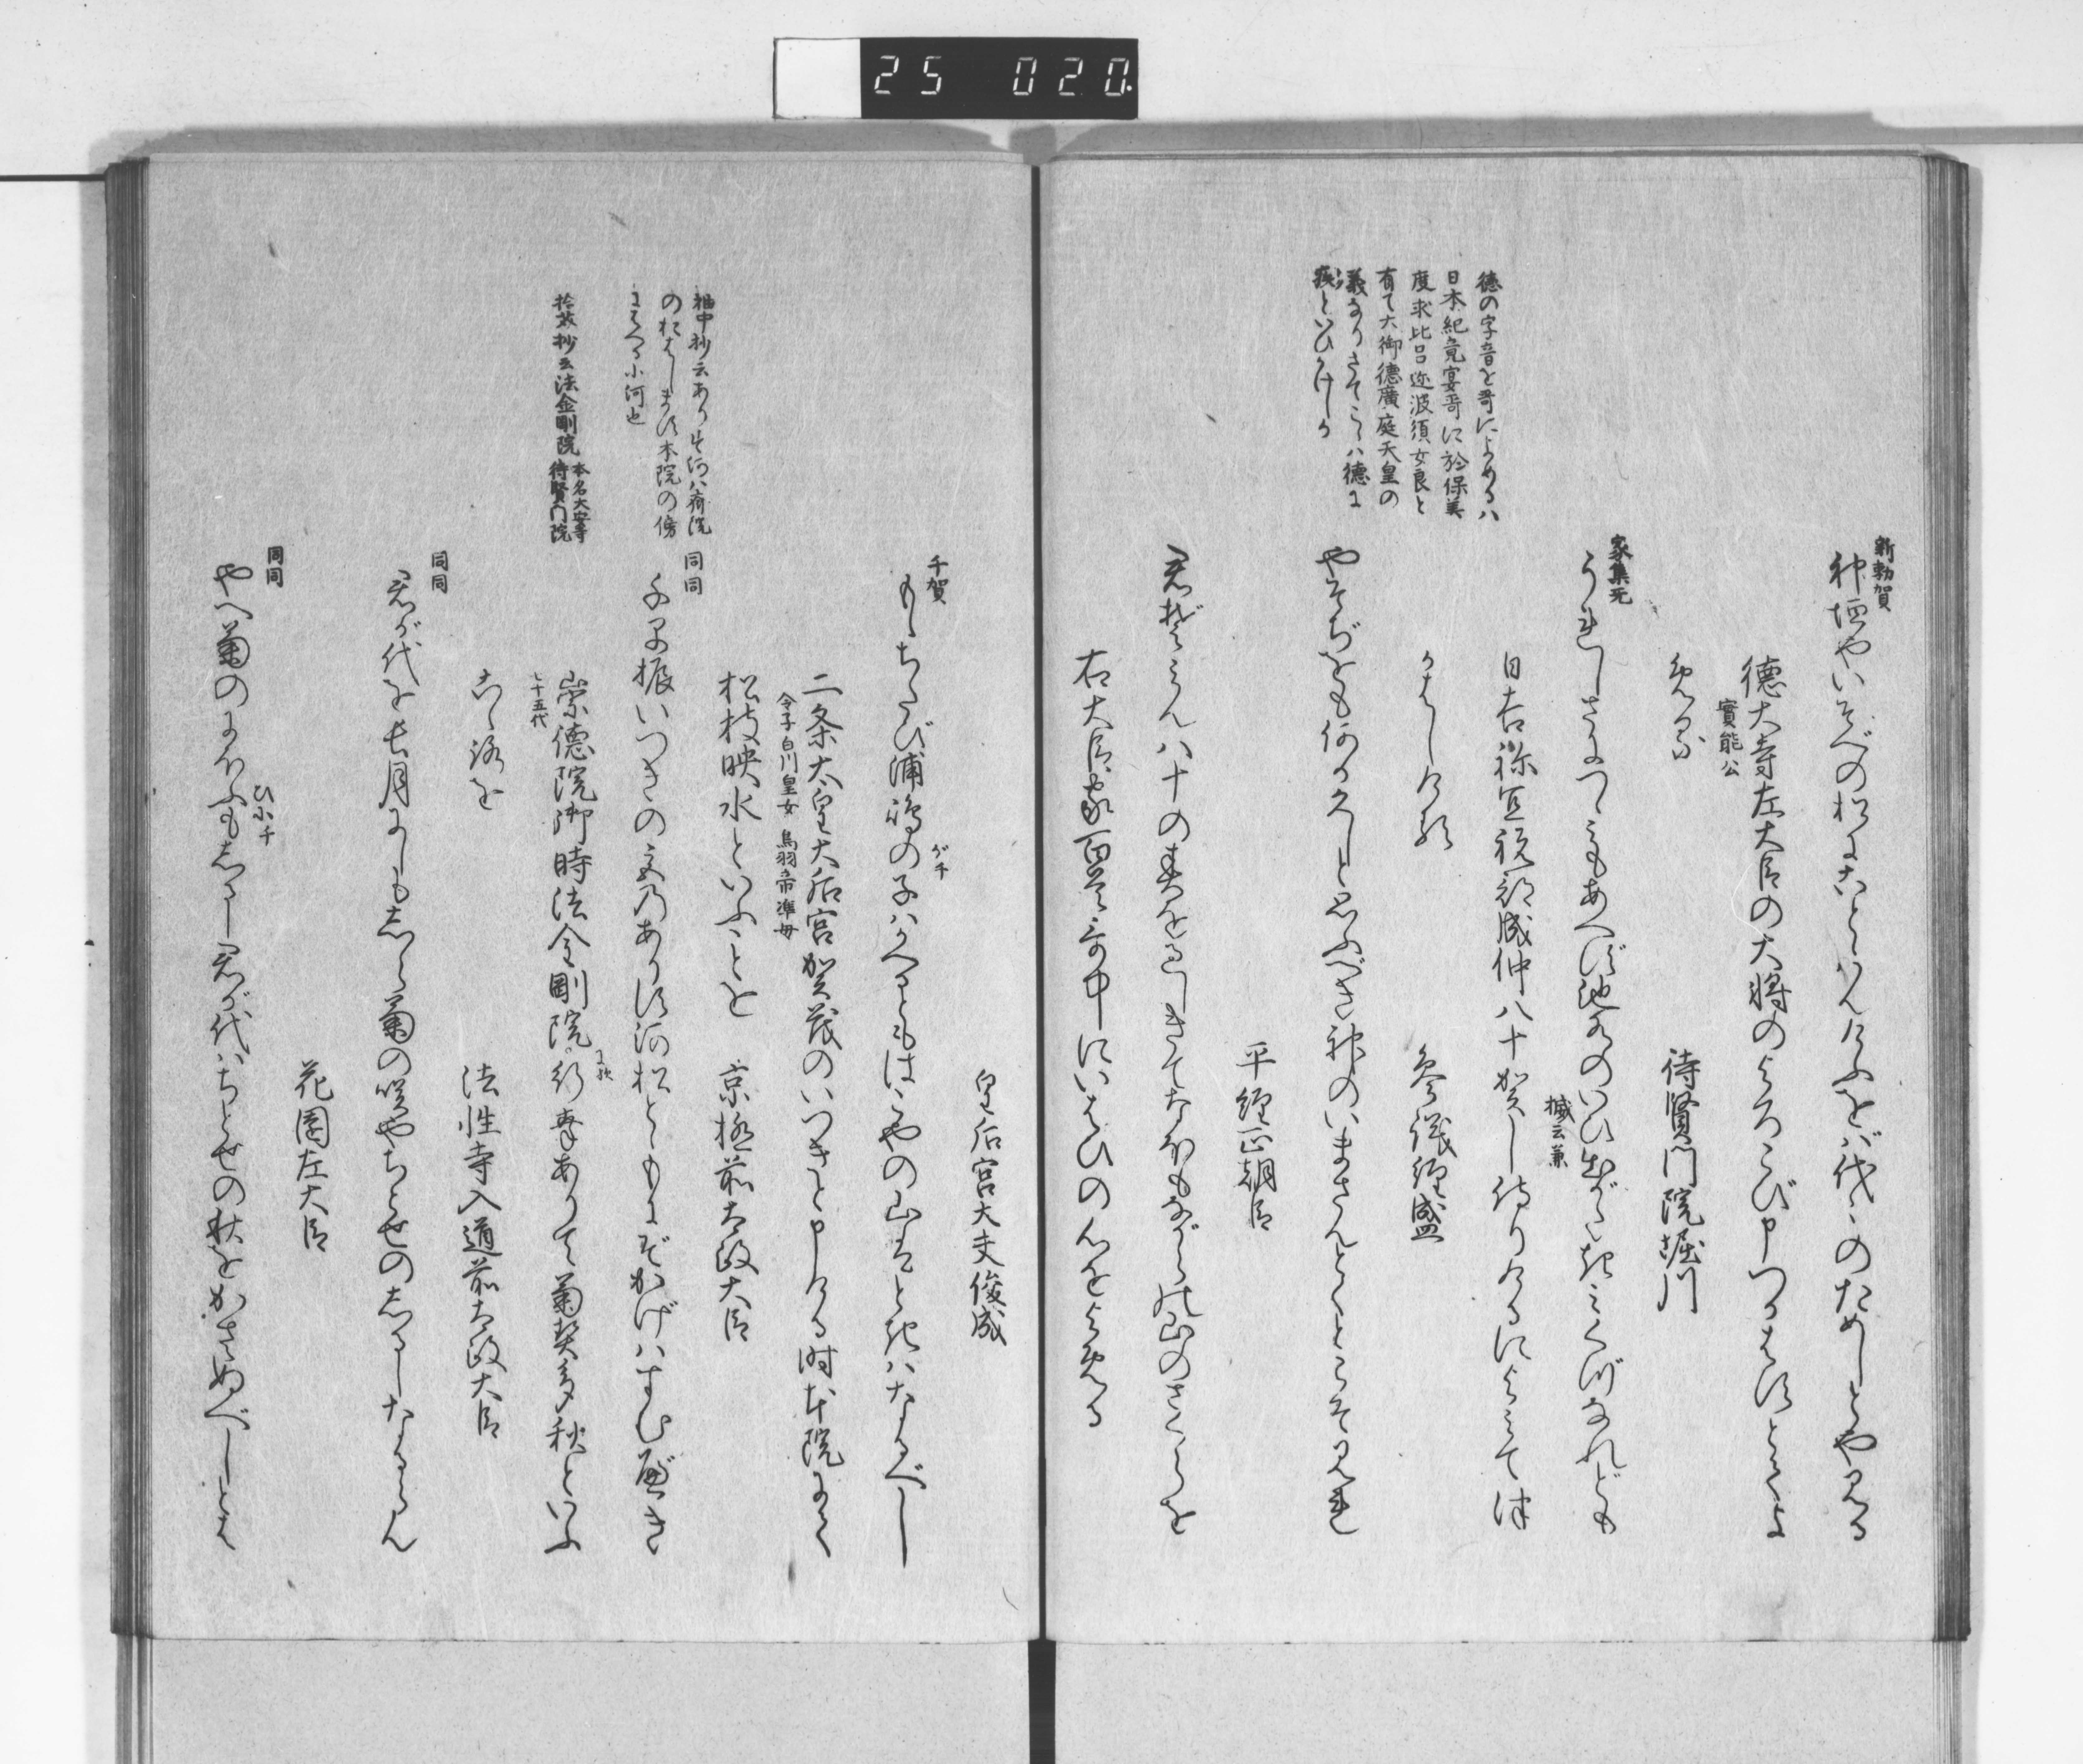 25 020
新勅賀
神垣やいそべの松にことゝはんけふをば代々のためしとや見る
德大寺左大臣の大将のよろこび申つかはすとてよ
實能公
める
待賢門院堀川
家集无
うれしさをつゝみもあへず池水の
いひ出がたきみくづなれども
日吉祢宜祝部成仲八十賀し侍りけるによみてつ
かはしける
参議経盛
德の字音を哥によめるハ
日本紀竟宴哥に於保美
度求比呂迩波須女良と
有て大御德廣庭天皇の
義なりさてこゝハ德に
疾といひかけしか
やそぢをも何か久しと思ふべき神のいまさんとくとこそ見れ
平経正朝臣
右大臣家百首哥中にいはひの心をよめる
皇后宮大夫俊成
千賀
もゝちたび浦嶋の子ハかへるともはこやの山はときハなるべし
が千
二条太皇大后宮賀茂のいつきと申ける時本院にて
令子白川皇女 鳥羽帝准母
松枝映水といふことを
京極前太政大臣
袖中抄云ありす河ハ斎院
のおはします本院の傍
に侍る小河也
同同
千早振いつきの宮のありす河松とゝもにぞかげハすむべき
拾芥抄云法金剛院
本名大安寺
待賢門院
崇德院御時法金剛院行幸ありて菊契多秋といふ
七十五代
こゝろを
法性寺入道前太政大臣
同同
君が代を長月にしもしら菊の咲やちとせのしるしなるらん
花園左大臣
同同
やへ菊のにほふもしるし君が代ハちとせの秋をかさぬべしとは
ひ小千